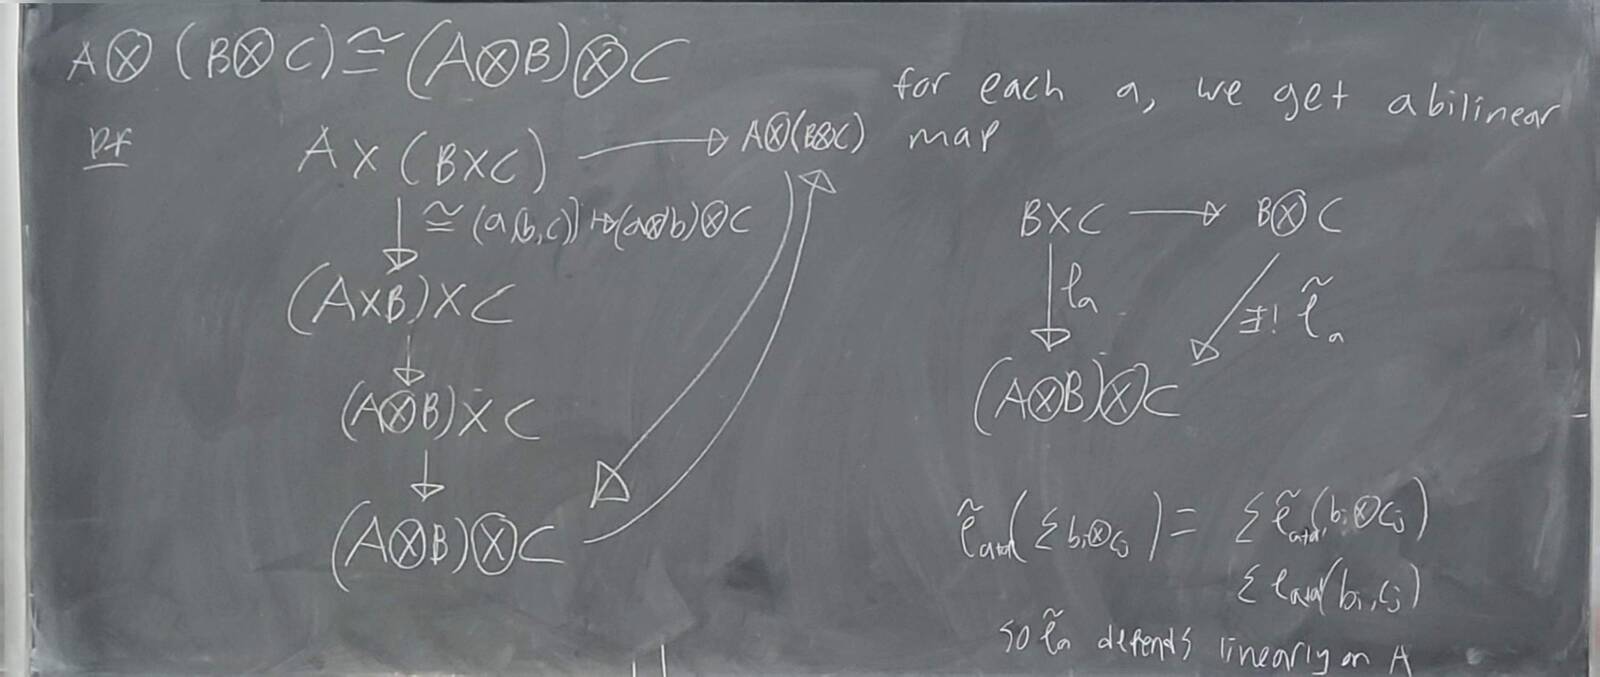 A⊗(B⊗C)≅(A⊗B)⊗C
Pf
A×(B×C) → A⊗(B⊗C)
≅ (a,(b,c)) ↦ (a⊗b)⊗c
(A×B)×C
(A⊗B)×C
(A⊗B)⊗C
for each a, we get a bilinear
map
B×C → B⊗C
l_a
∃! l̃_a
(A⊗B)⊗C
l̃_{a+a'}(Σ b_i⊗c_j) = Σ l̃_{a+a'}(b_i⊗c_j)
Σ l_{a+a'}(b_i, c_j)
so l̃_a depends linearly on A